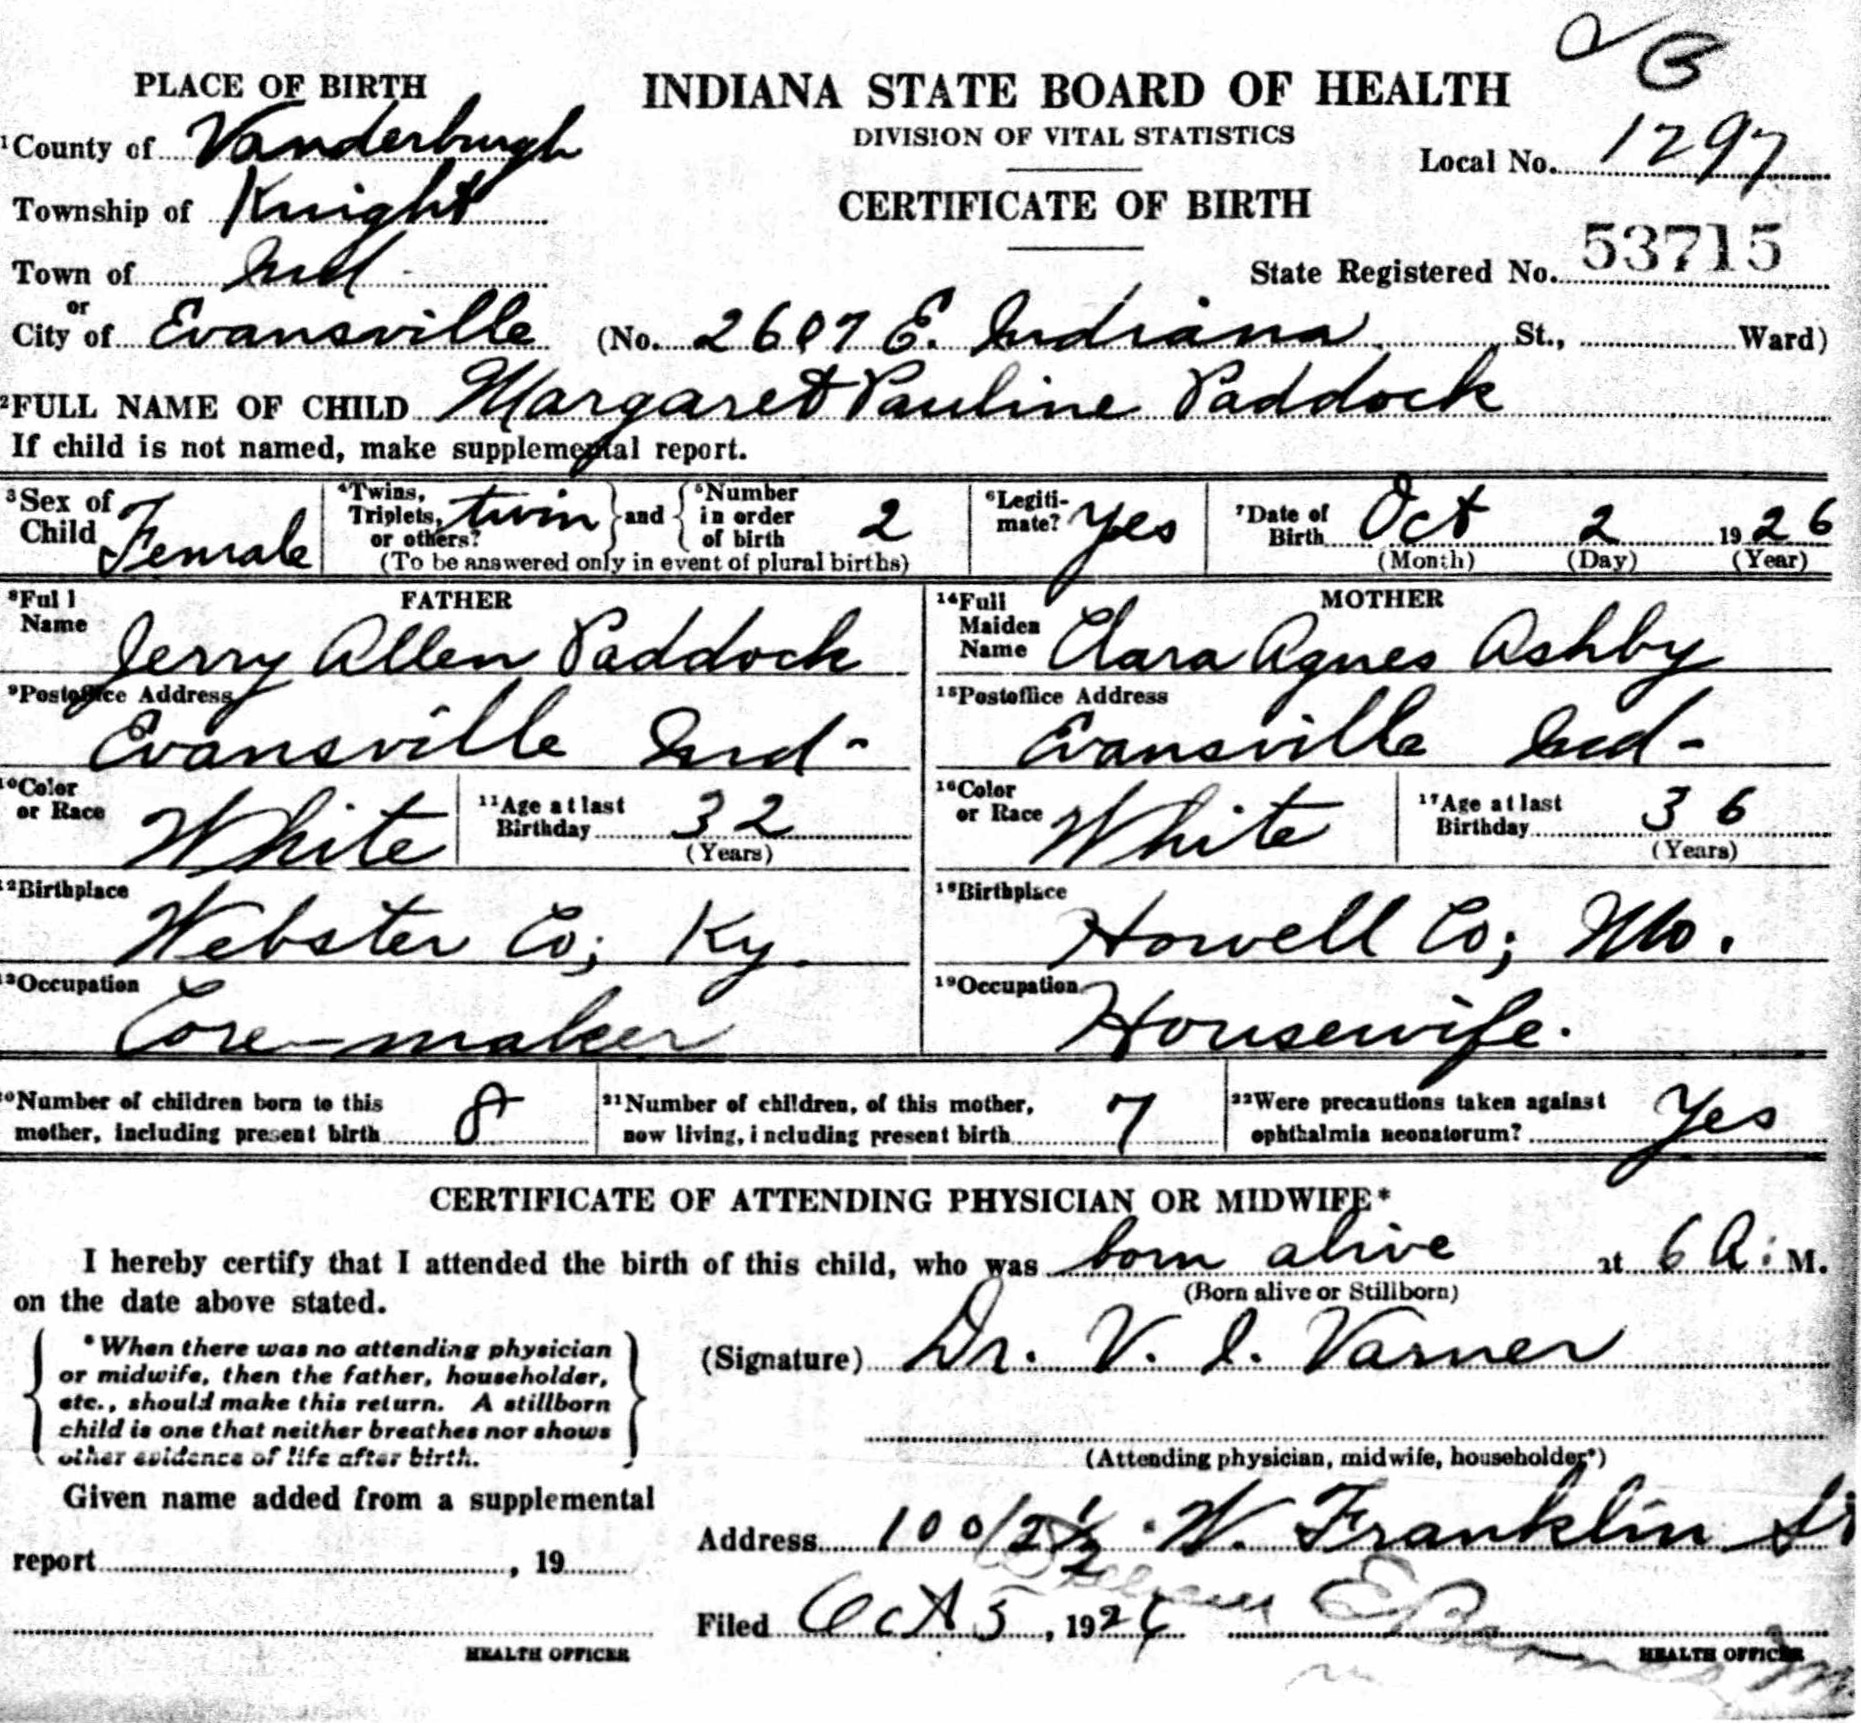 B
PLACE OF BIRTH
INDIANA STATE BOARD OF HEALTH
DIVISION OF VITAL STATISTICS
¹County of Vanderburgh
Local No. 1297
Township of Knight
CERTIFICATE OF BIRTH
Town of Ind.
State Registered No. 53715
or
City of Evansville (No. 2607 E. Indiana St., Ward)
²FULL NAME OF CHILD Margaret Pauline Paddock
If child is not named, make supplemental report.
³Sex of Child Female
⁴Twins, Triplets, or others? twin and ⁵Number in order of birth 2
(To be answered only in event of plural births)
⁶Legiti-mate? Yes
⁷Date of Birth Oct 2 1926
(Month) (Day) (Year)
FATHER
⁸Full Name Jerry Allen Paddock
MOTHER
¹⁴Full Maiden Name Clara Agnes Ashby
⁹Postoffice Address
Evansville Ind-
¹⁵Postoffice Address
Evansville Ind-
¹⁰Color or Race White
¹¹Age at last Birthday 32
(Years)
¹⁶Color or Race White
¹⁷Age at last Birthday 36
(Years)
¹²Birthplace
Webster Co; Ky.
¹⁸Birthplace
Howell Co; Mo.
¹³Occupation
Core-maker
¹⁹Occupation
Housewife.
²⁰Number of children born to this mother, including present birth 8
²¹Number of children, of this mother, now living, including present birth 7
²²Were precautions taken against ophthalmia neonatorum? Yes
CERTIFICATE OF ATTENDING PHYSICIAN OR MIDWIFE*
I hereby certify that I attended the birth of this child, who was born alive at 6 A. M.
(Born alive or Stillborn)
on the date above stated.
*When there was no attending physician
or midwife, then the father, householder,
etc., should make this return. A stillborn
child is one that neither breathes nor shows
other evidence of life after birth.
(Signature) Dr. V. I. Varner
(Attending physician, midwife, householder*)
Given name added from a supplemental
report , 19
HEALTH OFFICER
Address 100/2½ W. Franklin St
Filed Oct 5, 1926
HEALTH OFFICER